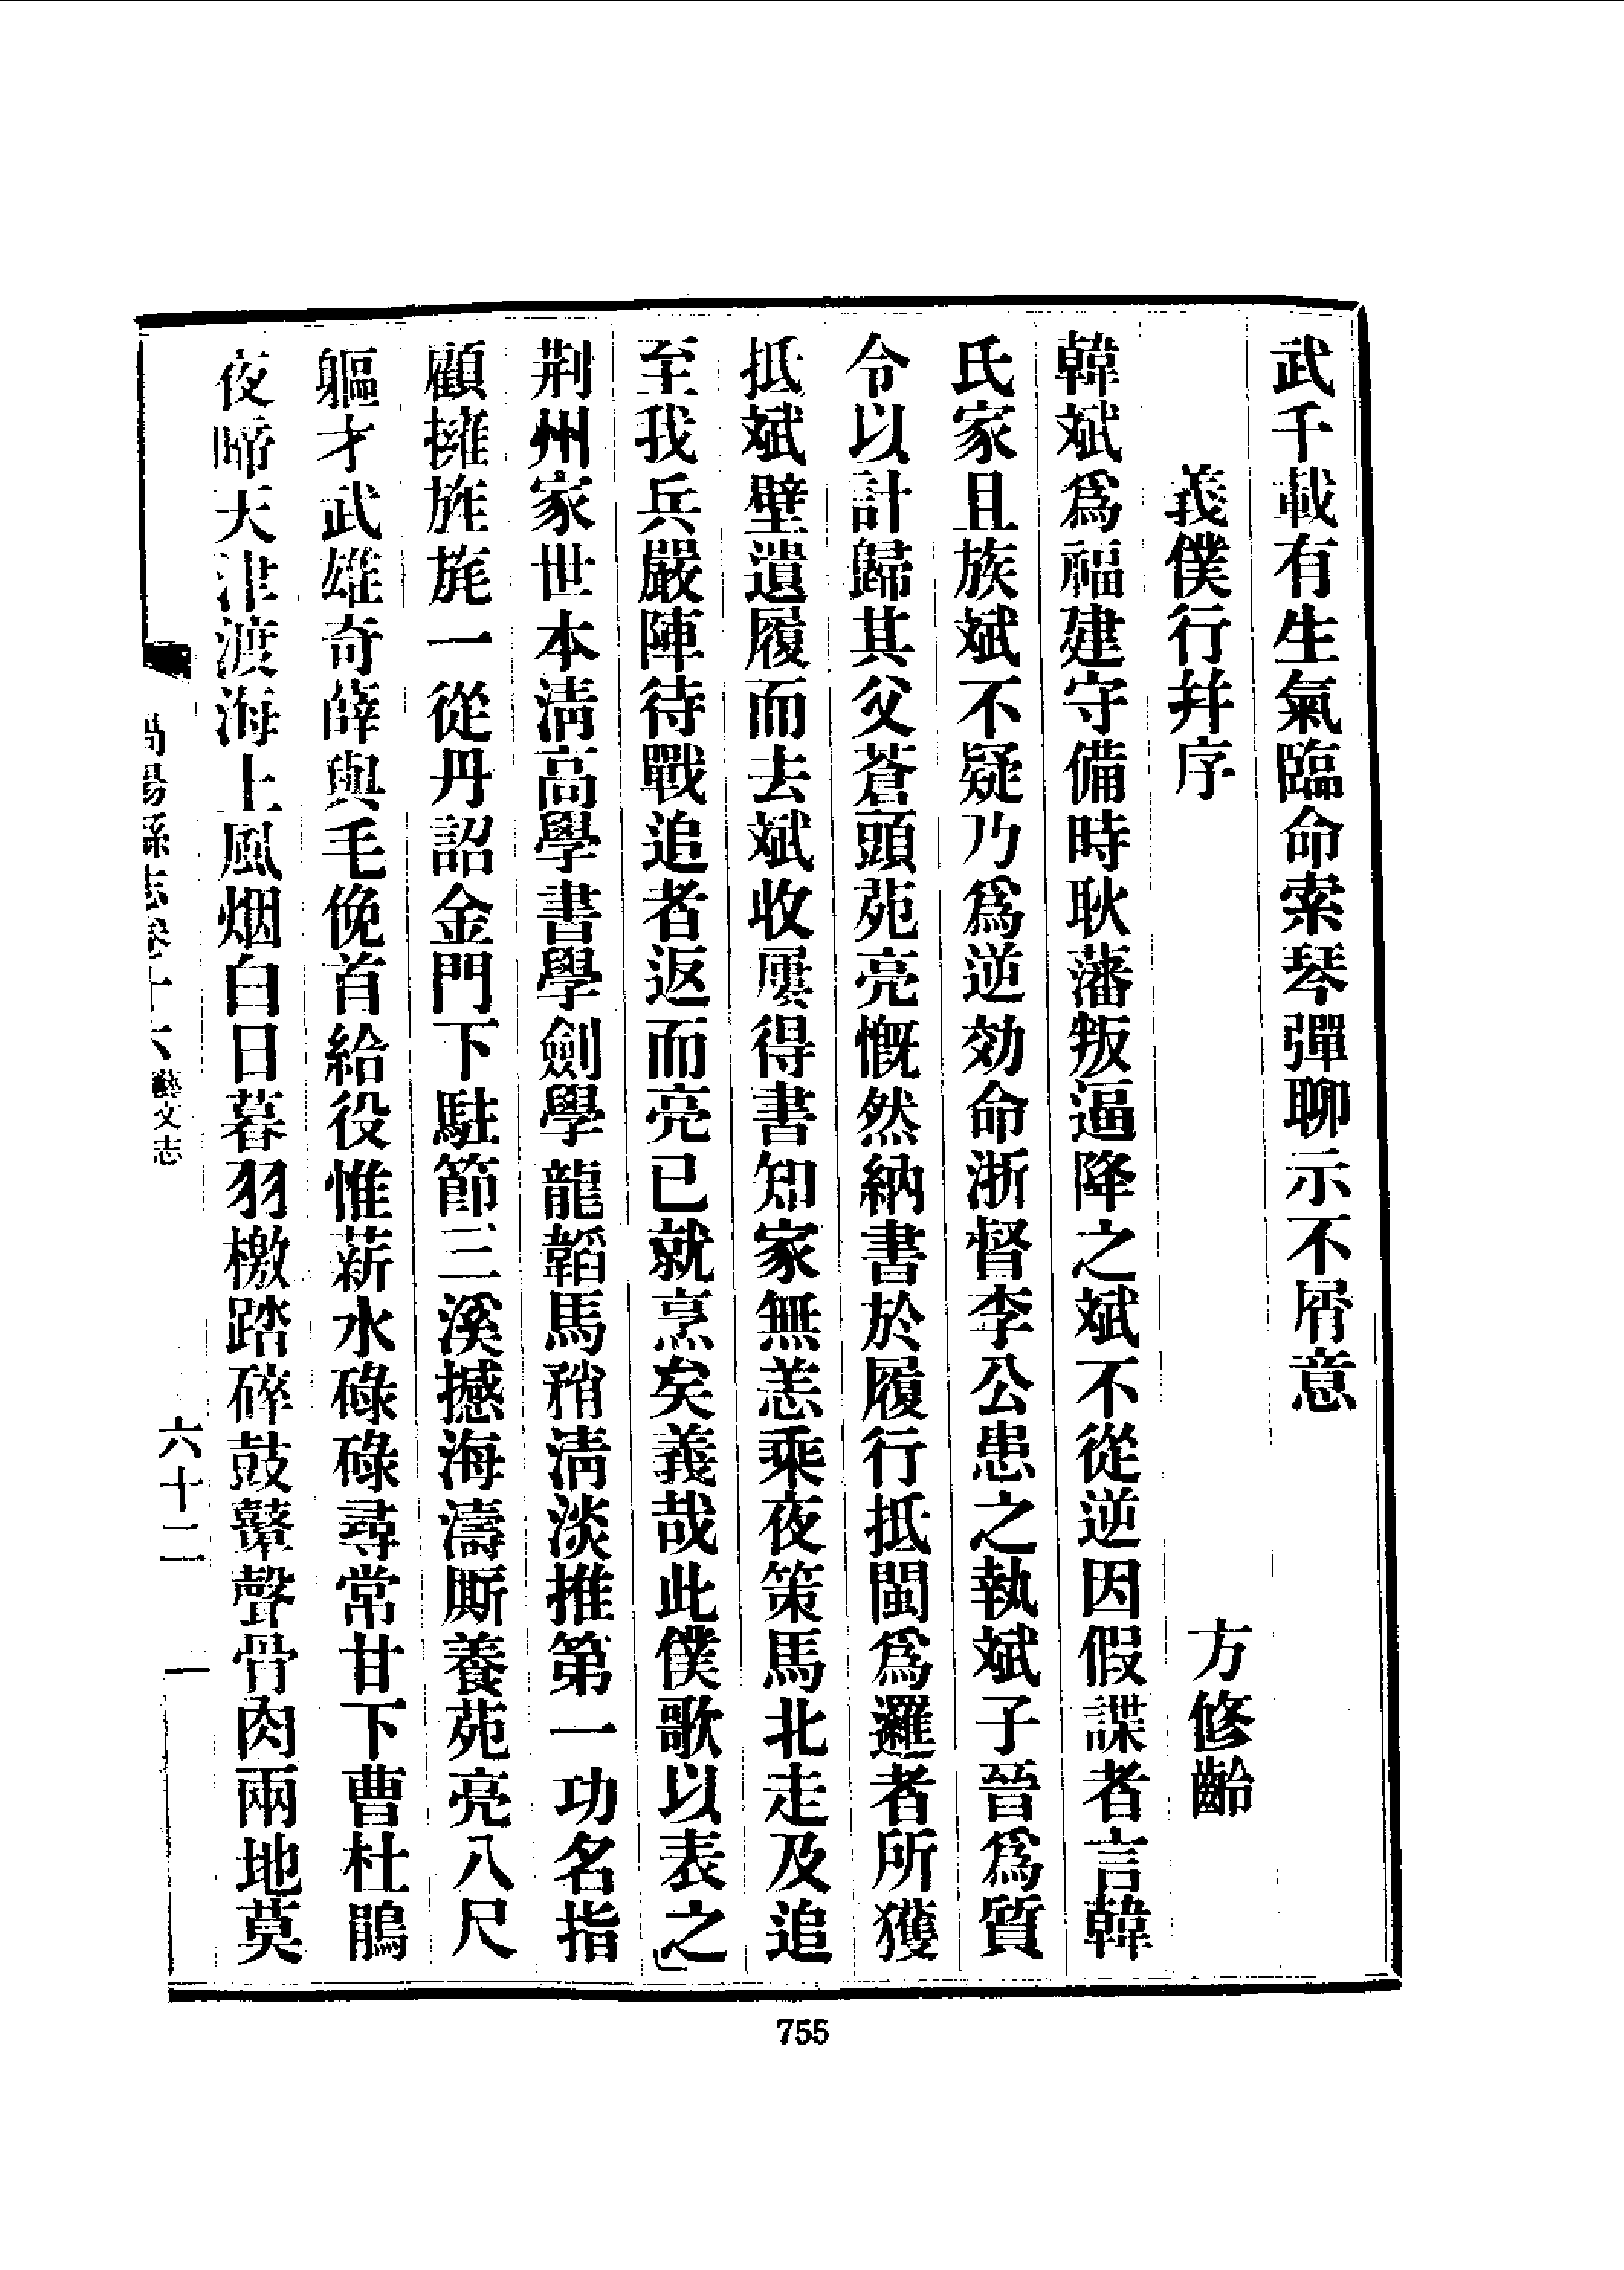 武千載有生氣臨命索琴彈聊示不屑意
義僕行幷序　方修齡
韓斌爲福建守備時耿藩叛逼降之斌不從逆因假諜者言韓
氏家且族斌不疑乃爲逆効命浙督李公患之執斌子晉爲質
令以計歸其父蒼頭苑亮慨然納書於履行抵閩爲邏者所獲
抵斌壁遺履而去斌收屨得書知家無恙乘夜策馬北走及追
至我兵嚴陣待戰追者返而亮已就烹矣義哉此僕歌以表之
荆州家世本清高學書學劍學龍韜馬矟清淡推第一功名指
顧擁旌旄一從丹詔金門下駐節三溪撼海濤厮養苑亮八尺
軀才武雄奇薛與毛俛首給役惟薪水碌碌尋常甘下曹杜鵑
夜啼天津渡海上風烟白日暮羽檄踏碎鼓鼙聲骨肉兩地莫
陽縣志卷十六 藝文志　六十二
755